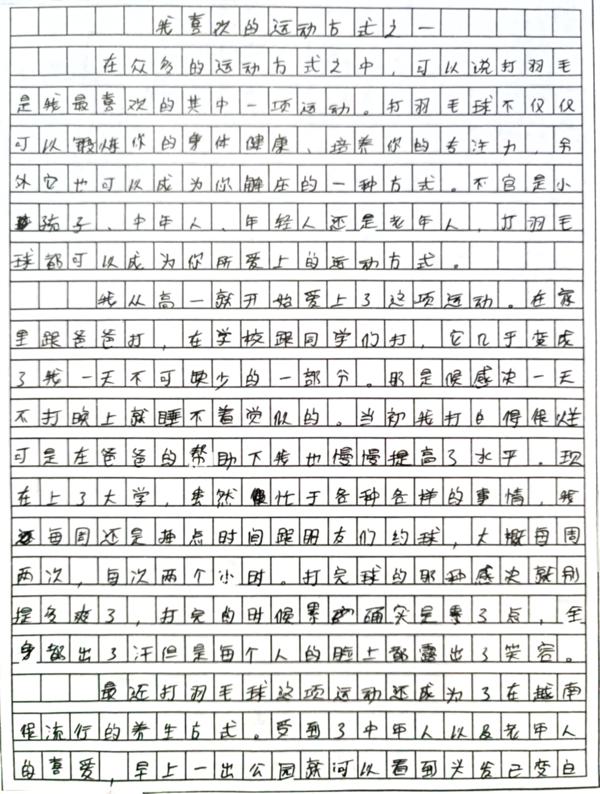 我喜欢的运动方式之一
在众多的运动方式之中，可以说打羽毛
是我最喜欢的其中一项运动。打羽毛球不仅仅
可以锻炼你的身体健康、培养你的专注力，另
外它也可以成为你解压的一种方式。不管是小
孩子、中年人、年轻人还是老年人，打羽毛
球都可以成为你所爱上的运动方式。
我从高一就开始爱上了这项运动。在家
里跟爸爸打，在学校跟同学们打，它几乎变成
了我一天不可缺少的一部分。那是候感决一天
不打晚上就睡不着觉似的。当初我打的得很烂
可是在爸爸的帮助下我也慢慢提高了水平。现
在上了大学，虽然忙于各种各样的事情，我
每周还是抽点时间跟朋友们约球，大概每周
两次，每次两个小时。打完球的那种感决就别
提多爽了，打完的时候累确实是累了点，全
身都出了汗但是每个人的脸上都露出了笑容。
最近打羽毛球这项运动还成为了在越南
很流行的养生方式。受到了中年人以及老年人
的喜爱，早上一出公园就可以看到头发已变白